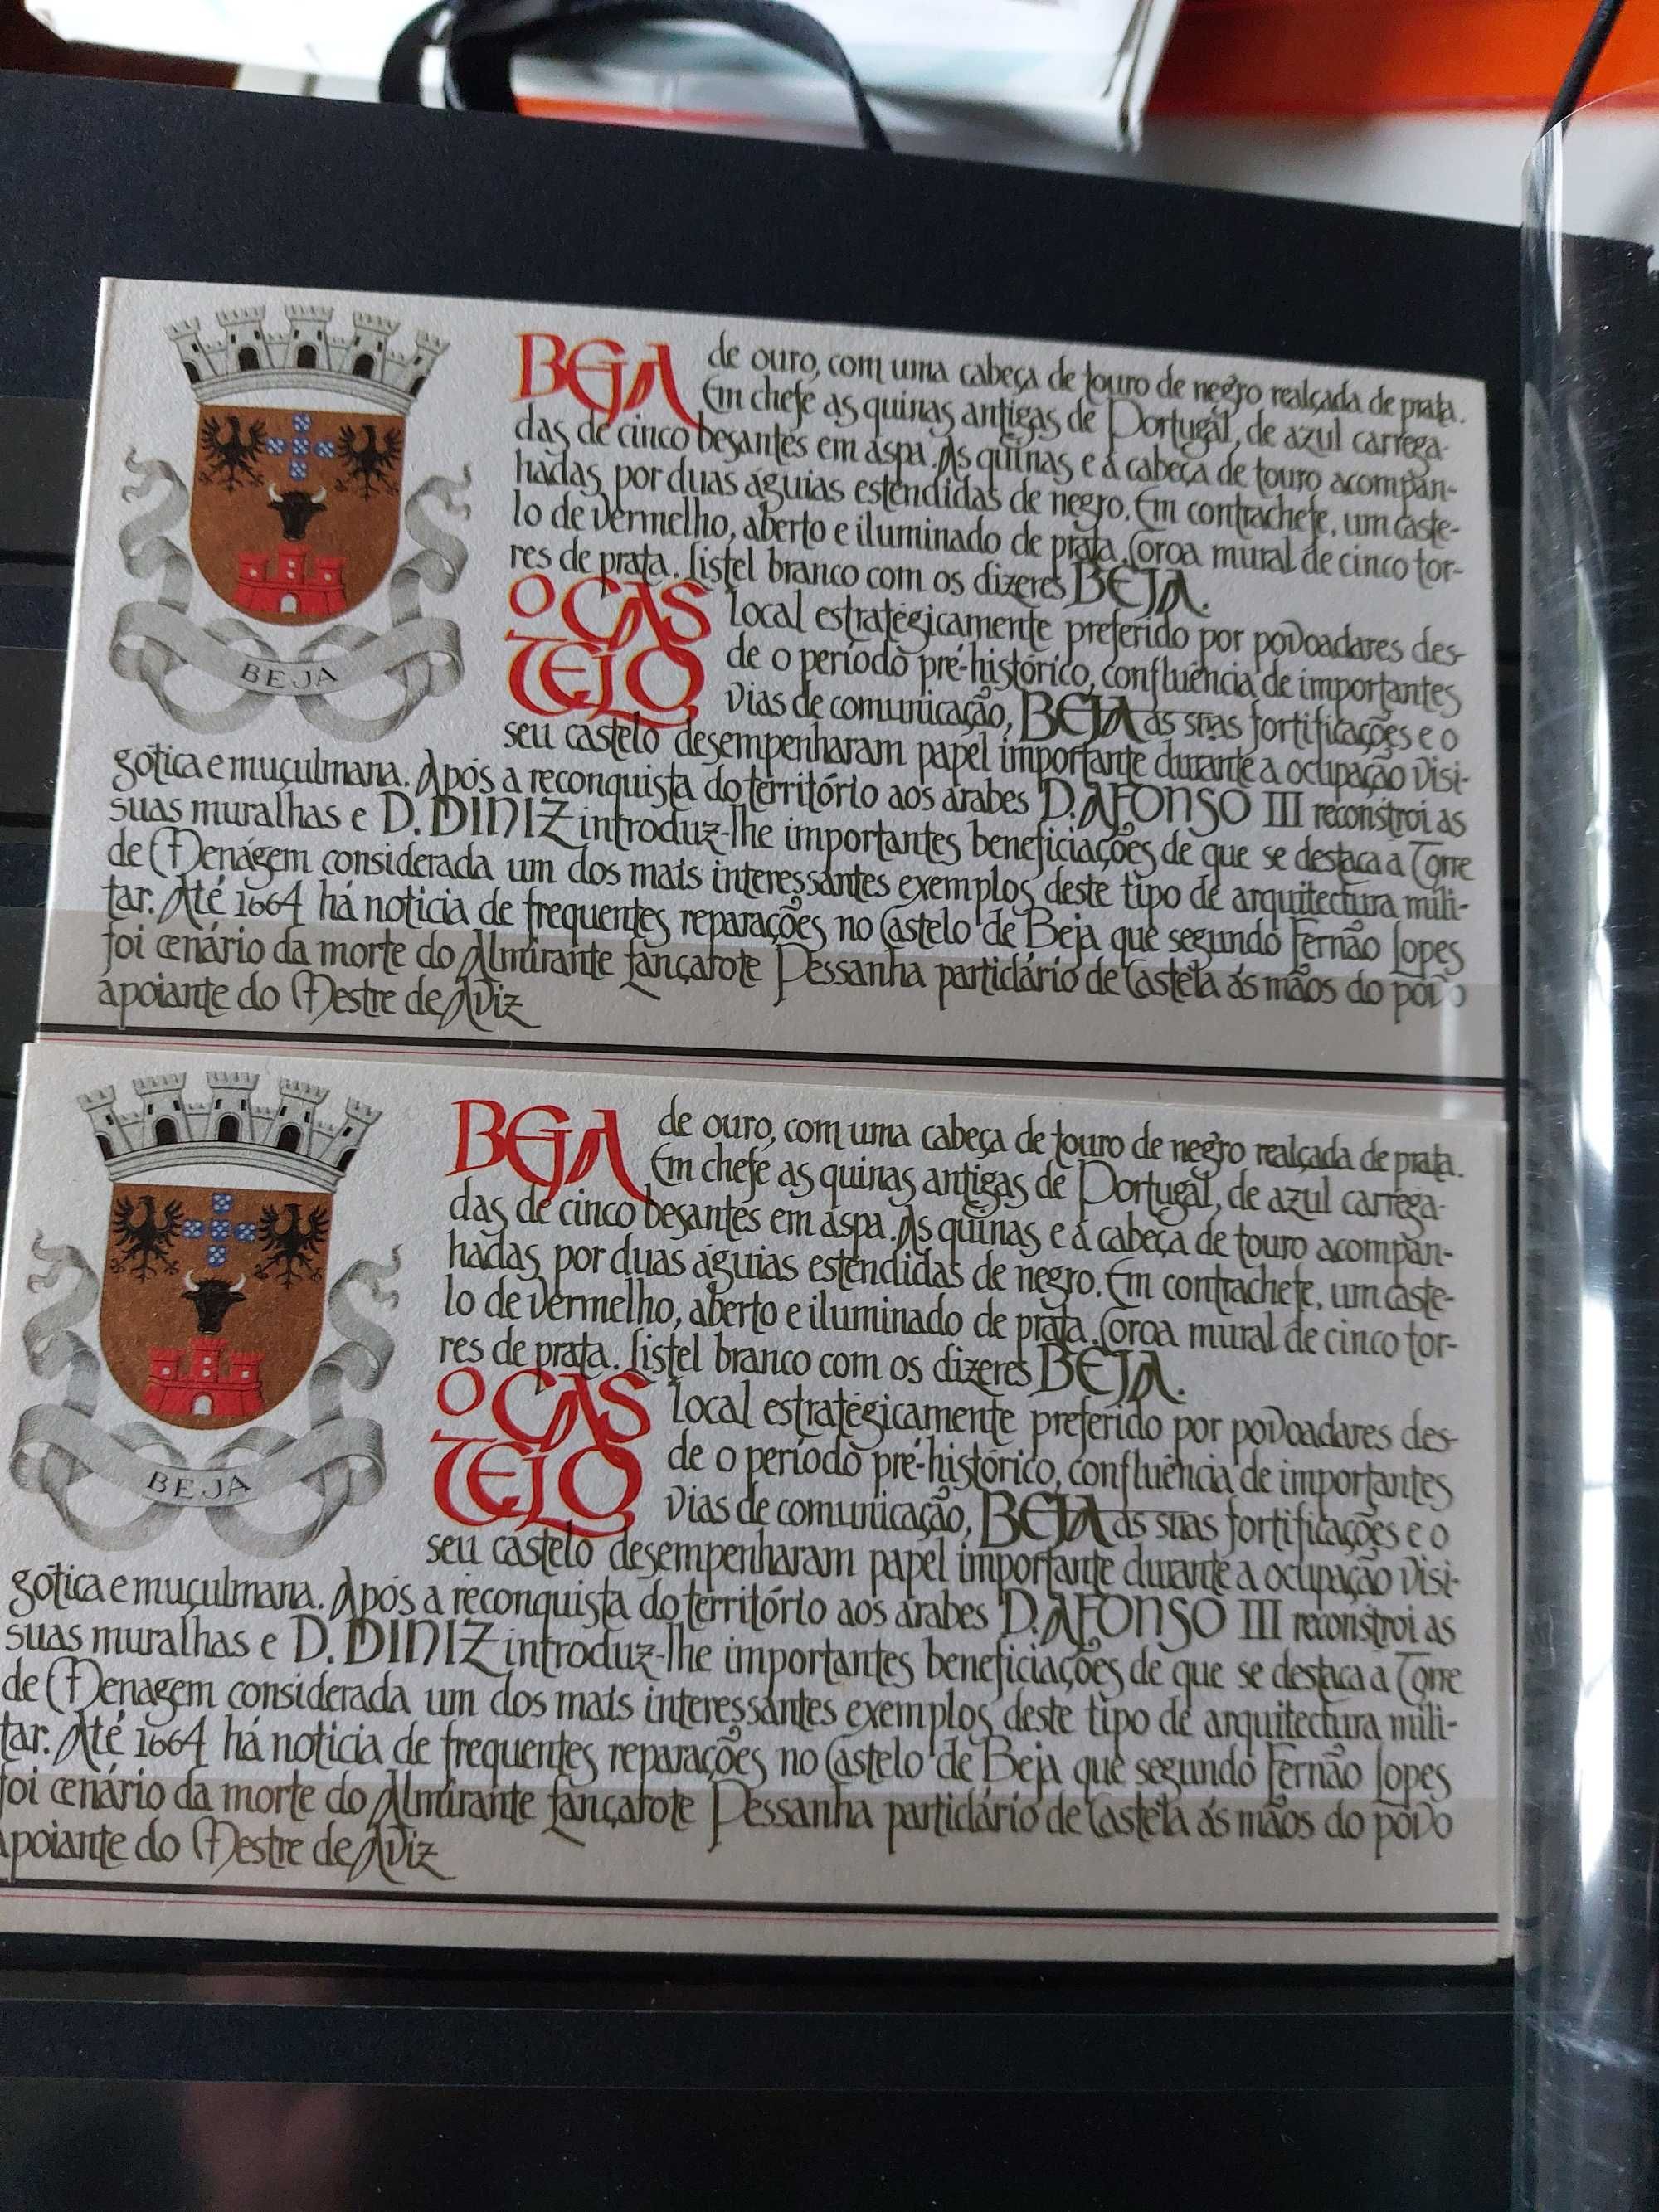 BEJA
BEJA de ouro, com uma cabeça de touro de negro realçada de prata.
Em chefe as quinas antigas de Portugal, de azul carrega-
das de cinco besantes em aspa. As quinas e a cabeça de touro acompan-
hadas por duas águias estendidas de negro. Em contrachefe, um caste-
lo de vermelho, aberto e iluminado de prata. Coroa mural de cinco tor-
res de prata. Listel branco com os dizeres BEJA.
O CAS
TELO
local estratégicamente preferido por povoadares des-
de o período pré-histórico, confluência de importantes
vias de comunicação, BEJA as suas fortificações e o
seu castelo desempenharam papel importante durante a ocupação visi-
gótica e muçulmana. Após a reconquista do território aos árabes D. AFONSO III reconstroi as
suas muralhas e D. DINIZ introduz-lhe importantes beneficiações de que se destaca a Torre
de Menágem considerada um dos mais interessantes exemplos deste tipo de arquitectura mili-
tar. Até 1664 há noticia de frequentes reparações no Castelo de Beja que segundo Fernão Lopes
foi cenário da morte do Almirante Lançarote Pessanha particlário de Castela ás mãos do povo
apoiante do Mestre de Aviz
BEJA
BEJA de ouro, com uma cabeça de touro de negro realçada de prata.
Em chefe as quinas antigas de Portugal, de azul carrega-
das de cinco besantes em aspa. As quinas e a cabeça de touro acompan-
hadas por duas águias estendidas de negro. Em contrachefe, um caste-
lo de vermelho, aberto e iluminado de prata. Coroa mural de cinco tor-
res de prata. Listel branco com os dizeres BEJA.
O CAS
TELO
local estratégicamente preferido por povoadares des-
de o período pré-histórico, confluência de importantes
vias de comunicação, BEJA as suas fortificações e o
seu castelo desempenharam papel importante durante a ocupação visi-
gótica e muçulmana. Após a reconquista do território aos árabes D. AFONSO III reconstroi as
suas muralhas e D. DINIZ introduz-lhe importantes beneficiações de que se destaca a Torre
de Menagem considerada um dos mais interessantes exemplos deste tipo de arquitectura mili-
tar. Até 1664 há noticia de frequentes reparações no Castelo de Beja que segundo Fernão Lopes
foi cenário da morte do Almirante Lançarote Pessanha particlário de Castela ás mãos do povo
apoiante do Mestre de Aviz